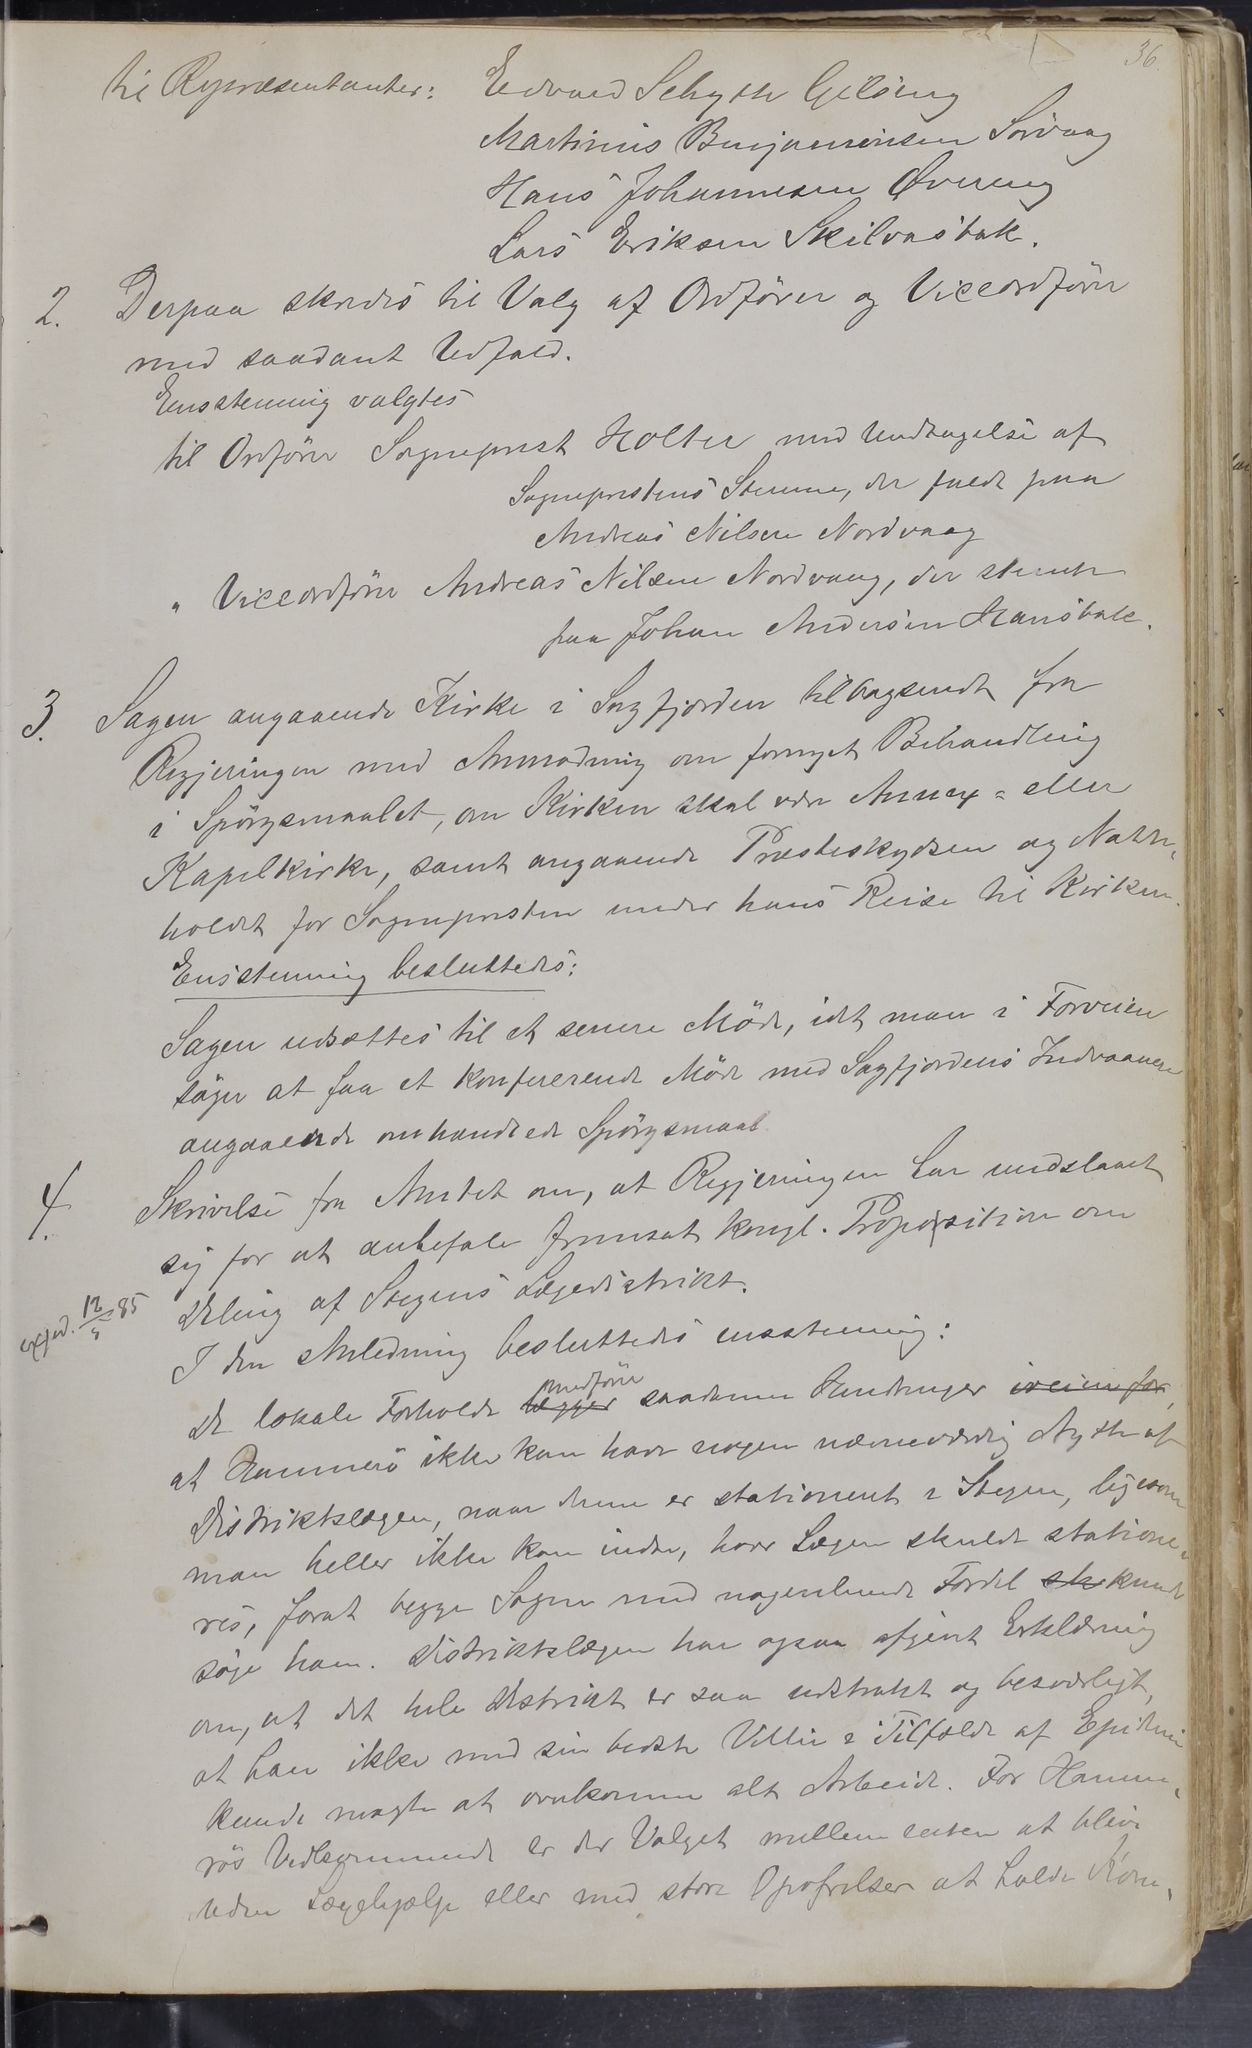 36.
til Repræsentanter: Edvard Schytte Gilsing
Martinus Benjaminsen Sørvaag
Hans Johannesen Øvereng
Lars Eriksen Skilvasbak.
2. Derpaa skredes til Valg af Ordfører og Viceordfører
med saadant Udfald.
Eensstemmig valgtes
til Ordfører Sogneprest Holter med Undtagelse af
Sogneprestens Stemme, der faldt paa
Andreas Nilsen Nordvaag
" Viceordfører Andreas Nilsen Nordvaag, der stemte
paa Johan Andersen Hansbak.
3. Sagen angaaende Kirke i Sagfjorden tilbagesendt fra
Regjeringen med Anmodning om fornyet Behandling
i Spørgsmaalet, om Kirken skal være Annex- eller
Kapelkirke, samt angaaende Præsteskydsen og Natte-
holdet for Sognepresten under hans Reise til Kirken.
Eensstemmig besluttedes:
Sagen udsættes til et senere Møde, idet man i Forveien
søger at faa et konfererende Møde med Sagfjordens Indvaanere
angaaende omhandlede Spørgsmaal
4. Skrivelse fra Amtet om, at Regjeringen har undslaaet
sig for at anbefale fremsat kongl. Proposition om
Deling af Stegens Lægedistrikt.
exped. 12/5 85
I den Anledning besluttedes eensstemmig:
De lokale Forholde lægger medføre saadanne Hindringer iveien for,
at Hammerø ikke kan have nogen nævneværdig Nytte af
Distriktslægen, naar denne er stationeret i Stegen, ligesom
man heller ikke kan indse, hvor Lægen skulde statione-
res, forat begge Sogne med nogenlunde Fordel sk kunde
søge ham. Distriktslægen har ogsaa afgivet Erklæring
om, at det hele Distrikt er saa udstrakt og besværligt,
at han ikke med sin bedste Villie i Tilfælde af Epidemi
kunde magte at overkomme alt Arbeide. For Hamme-
røs Vedkommende er der Valget mellem enten at blive
uden Lægehjælp eller med store Opofrelser at holde Kom-